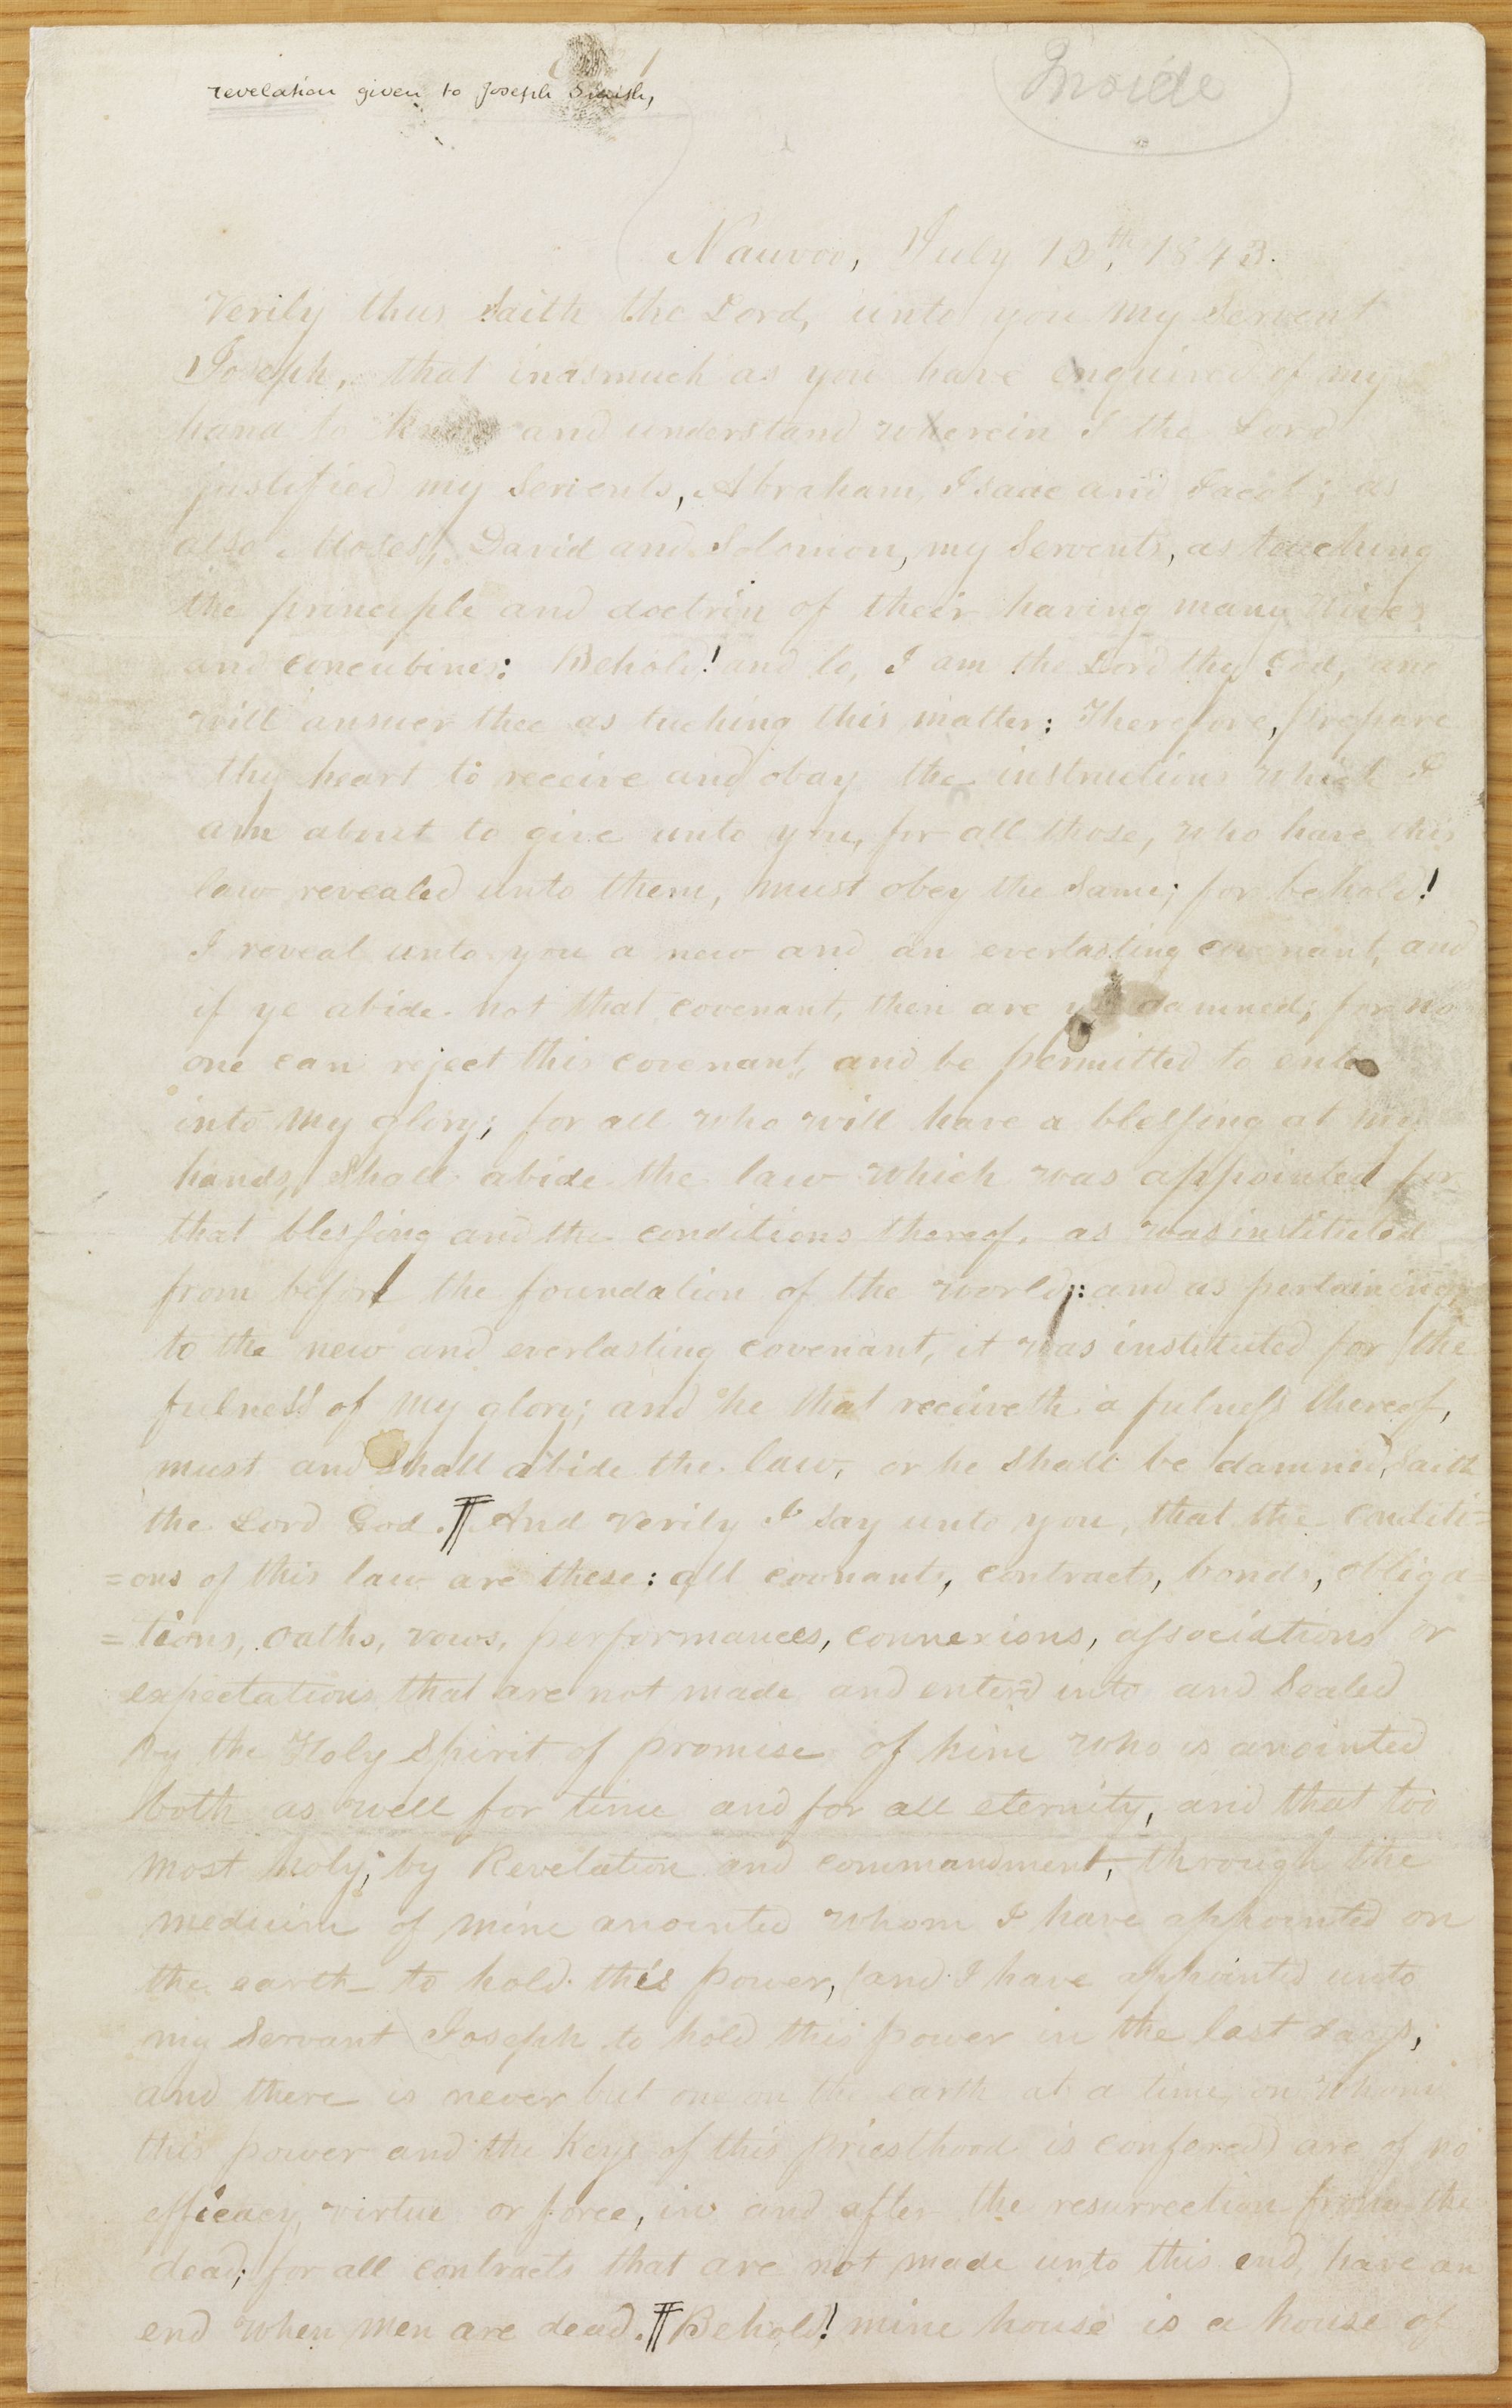 revelation given to Joseph Smith,
Inside
Nauvoo, July 12th, 1843.
Verily thus saith the Lord, unto you my servent
Joseph, that inasmuch as you have enquired of my
hand to know and understand wherein I the Lord
justified my servents, Abraham, Isaac and Jacob; as
also Moses, David and Solomon, my servents, as touching
the principle and doctrin of their having many wives
and concubines: Behold! and lo, I am the Lord thy God, and
will answer thee as tuching this matter: Therefore, prepare
thy heart to receive and obay the instructions which I
am about to give unto you, for all those, who have this
law revealed unto them, must obey the same; for behold!
I reveal unto you a new and an everlasting covenant, and
if ye abide not that covenant, then are ye damned; for no
one can reject this covenant, and be permitted to enter
into my glory; for all who will have a blessing at my
hands, shall abide the law which was appointed for
that blessing and the conditions thereof, as was instituted
from before the foundation of the world: and as pertaining
to the new and everlasting covenant, it was instituted for the
fulness of my glory; and he that receiveth a fulness thereof,
must and shall abide the law, or he shall be damned, saith
the Lord God. ¶ And verily I say unto you, that the conditi=
=ons of this law are these: all covnants, contracts, bonds, obliga=
=tions, oaths, vows, performances, connexions, associations or
expectations that are not made and enterd into and sealed
by the Holy Spirit of promise of him who is anointed
both as well for time and for all eternity, and that too
most holy; by Revelation and commandment, through the
medium of mine anointed whom I have appointed on
the earth to hold this power, (and I have appointed unto
my servant Joseph to hold this power in the last days,
and there is never but one on the earth at a time, on whom
this power and the keys of this priesthood is confered) are of no
efficacy, virtue or force, in and after the resurrection from the
dead; for all contracts that are not made unto this end, have an
end when men are dead. ¶ Behold! mine house is a house of